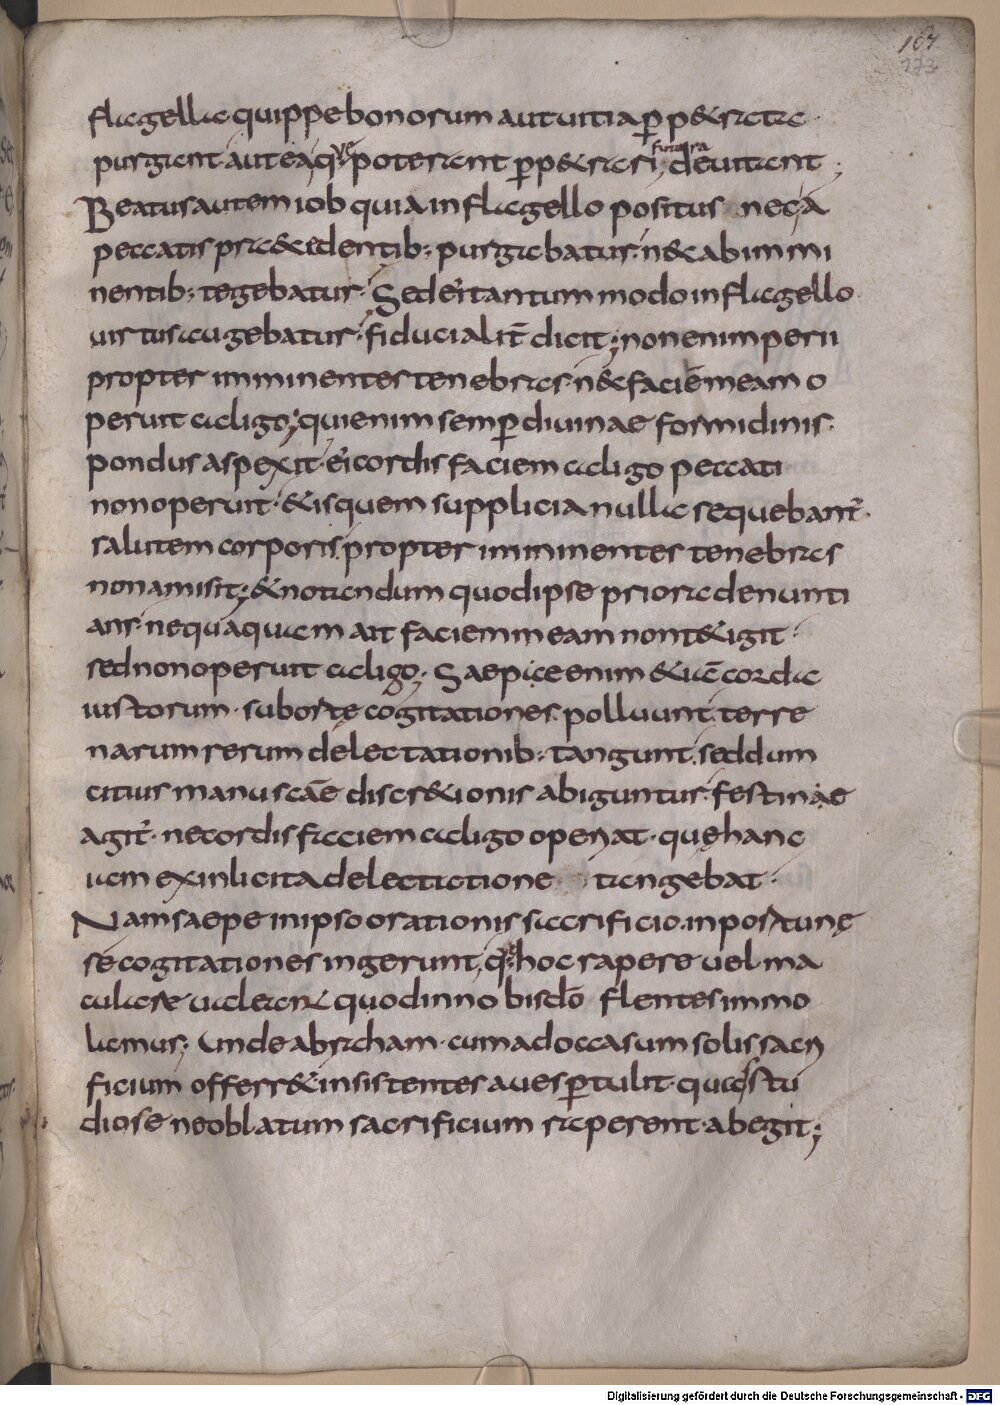 167
273
flagella quippe bonorum aut uitia p̄p&rata
purgant aut ea q̨ue poterant p̄p&rari futura deuitant;
Beatus autem iob quia in flagello positus nec a
peccatis praecedentib; purgabatur· n& ab immi
nentib; tegebatur· Sed ei' tantummodo in flagello
uirtus augebatur· fiducialit̄ dicit; non enim perii
propter imminentes tenebras· n& faciē meam o
peruit caligo; qui enim semp̄ diuinae formidinis·
pondus aspexit· ei' cordis faciem caligo peccati
non operuit· & is quem supplicia nulla sequebant'·
salutem corporis propter imminentes tenebras
non amisit; & notandum quod ipse priora denunti
ans· nequaquam ait faciem meam non t&igit·
sed non operuit caligo; Saepiae enim &iā corda
iustorum· subortę cogitationes polluunt· terre
narum rerum delectationib; tangunt· sed dum
citius manu scāe discr&ionis abiguntur· festinae
agit'· ne cordis faciem caligo operiat· quę hanc
iam ex inlicita delectatione tangebat·
Nam saepe in ipso orationis sacrificio inportunę
se cogitationes ingerunt, q̨e hoc rapere uel ma
culare ualeant quod in nobis dō flentes immo
lamus; Unde abraham· cum ad occasum solis sacri
ficium offerr& insistentes aues p̄tulit· quas stu
diose ne oblatum sacrificium raperent· abegit;
Digitalisierung gefördert durch die Deutsche Forschungsgemeinschaft - DFG